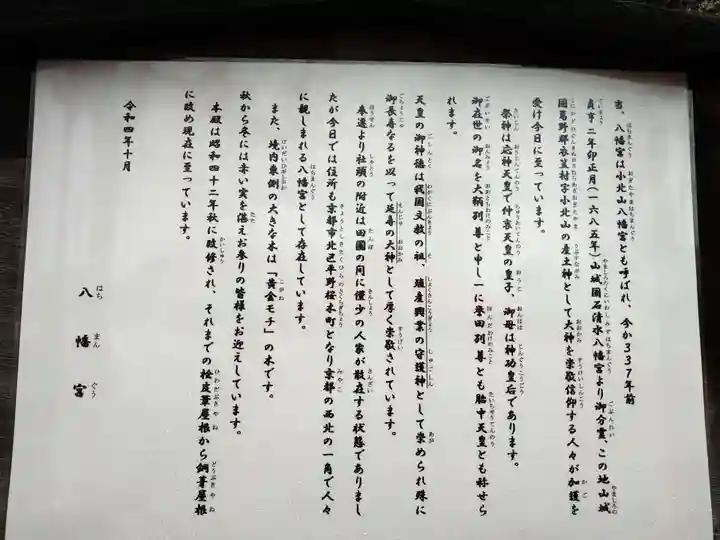 当、八幡宮は小北山八幡宮とも呼ばれ、今から337年前
貞亨二年卯正月（一六八五年）山城國石清水八幡宮より御分霊、この地山城
國葛野郡衣笠村字小北山の産土神として大神を崇敬信仰する人々が加護を
受け今日に至っています。
祭神は応神天皇で仲哀天皇の皇子、御母は神功皇后であります。
御在世の御名を大鞆別尊と申し一に誉田別尊とも胎中天皇とも称せら
れます。
天皇の御神徳は我國文教の祖、殖産興業の守護神として崇められ殊に
御長寿なるを以って延寿の大神として厚く崇敬されています。
奉遷より社頭の附近は田圃の間に僅少の人家が散在する状態でありまし
たが今日では住所も京都市北区平野桜木町となり京都の西北の一角で人々
に親しまれる八幡宮として存在しています。
また、境内東側の大きな木は「黄金モチ」の木です。
秋から冬には赤い実を湛えお参りの皆様をお迎えしています。
本殿は昭和四十二年秋に改修され、それまでの桧皮葺屋根から銅葺屋根
に改め現在に至っています。
令和四年十月
八幡宮